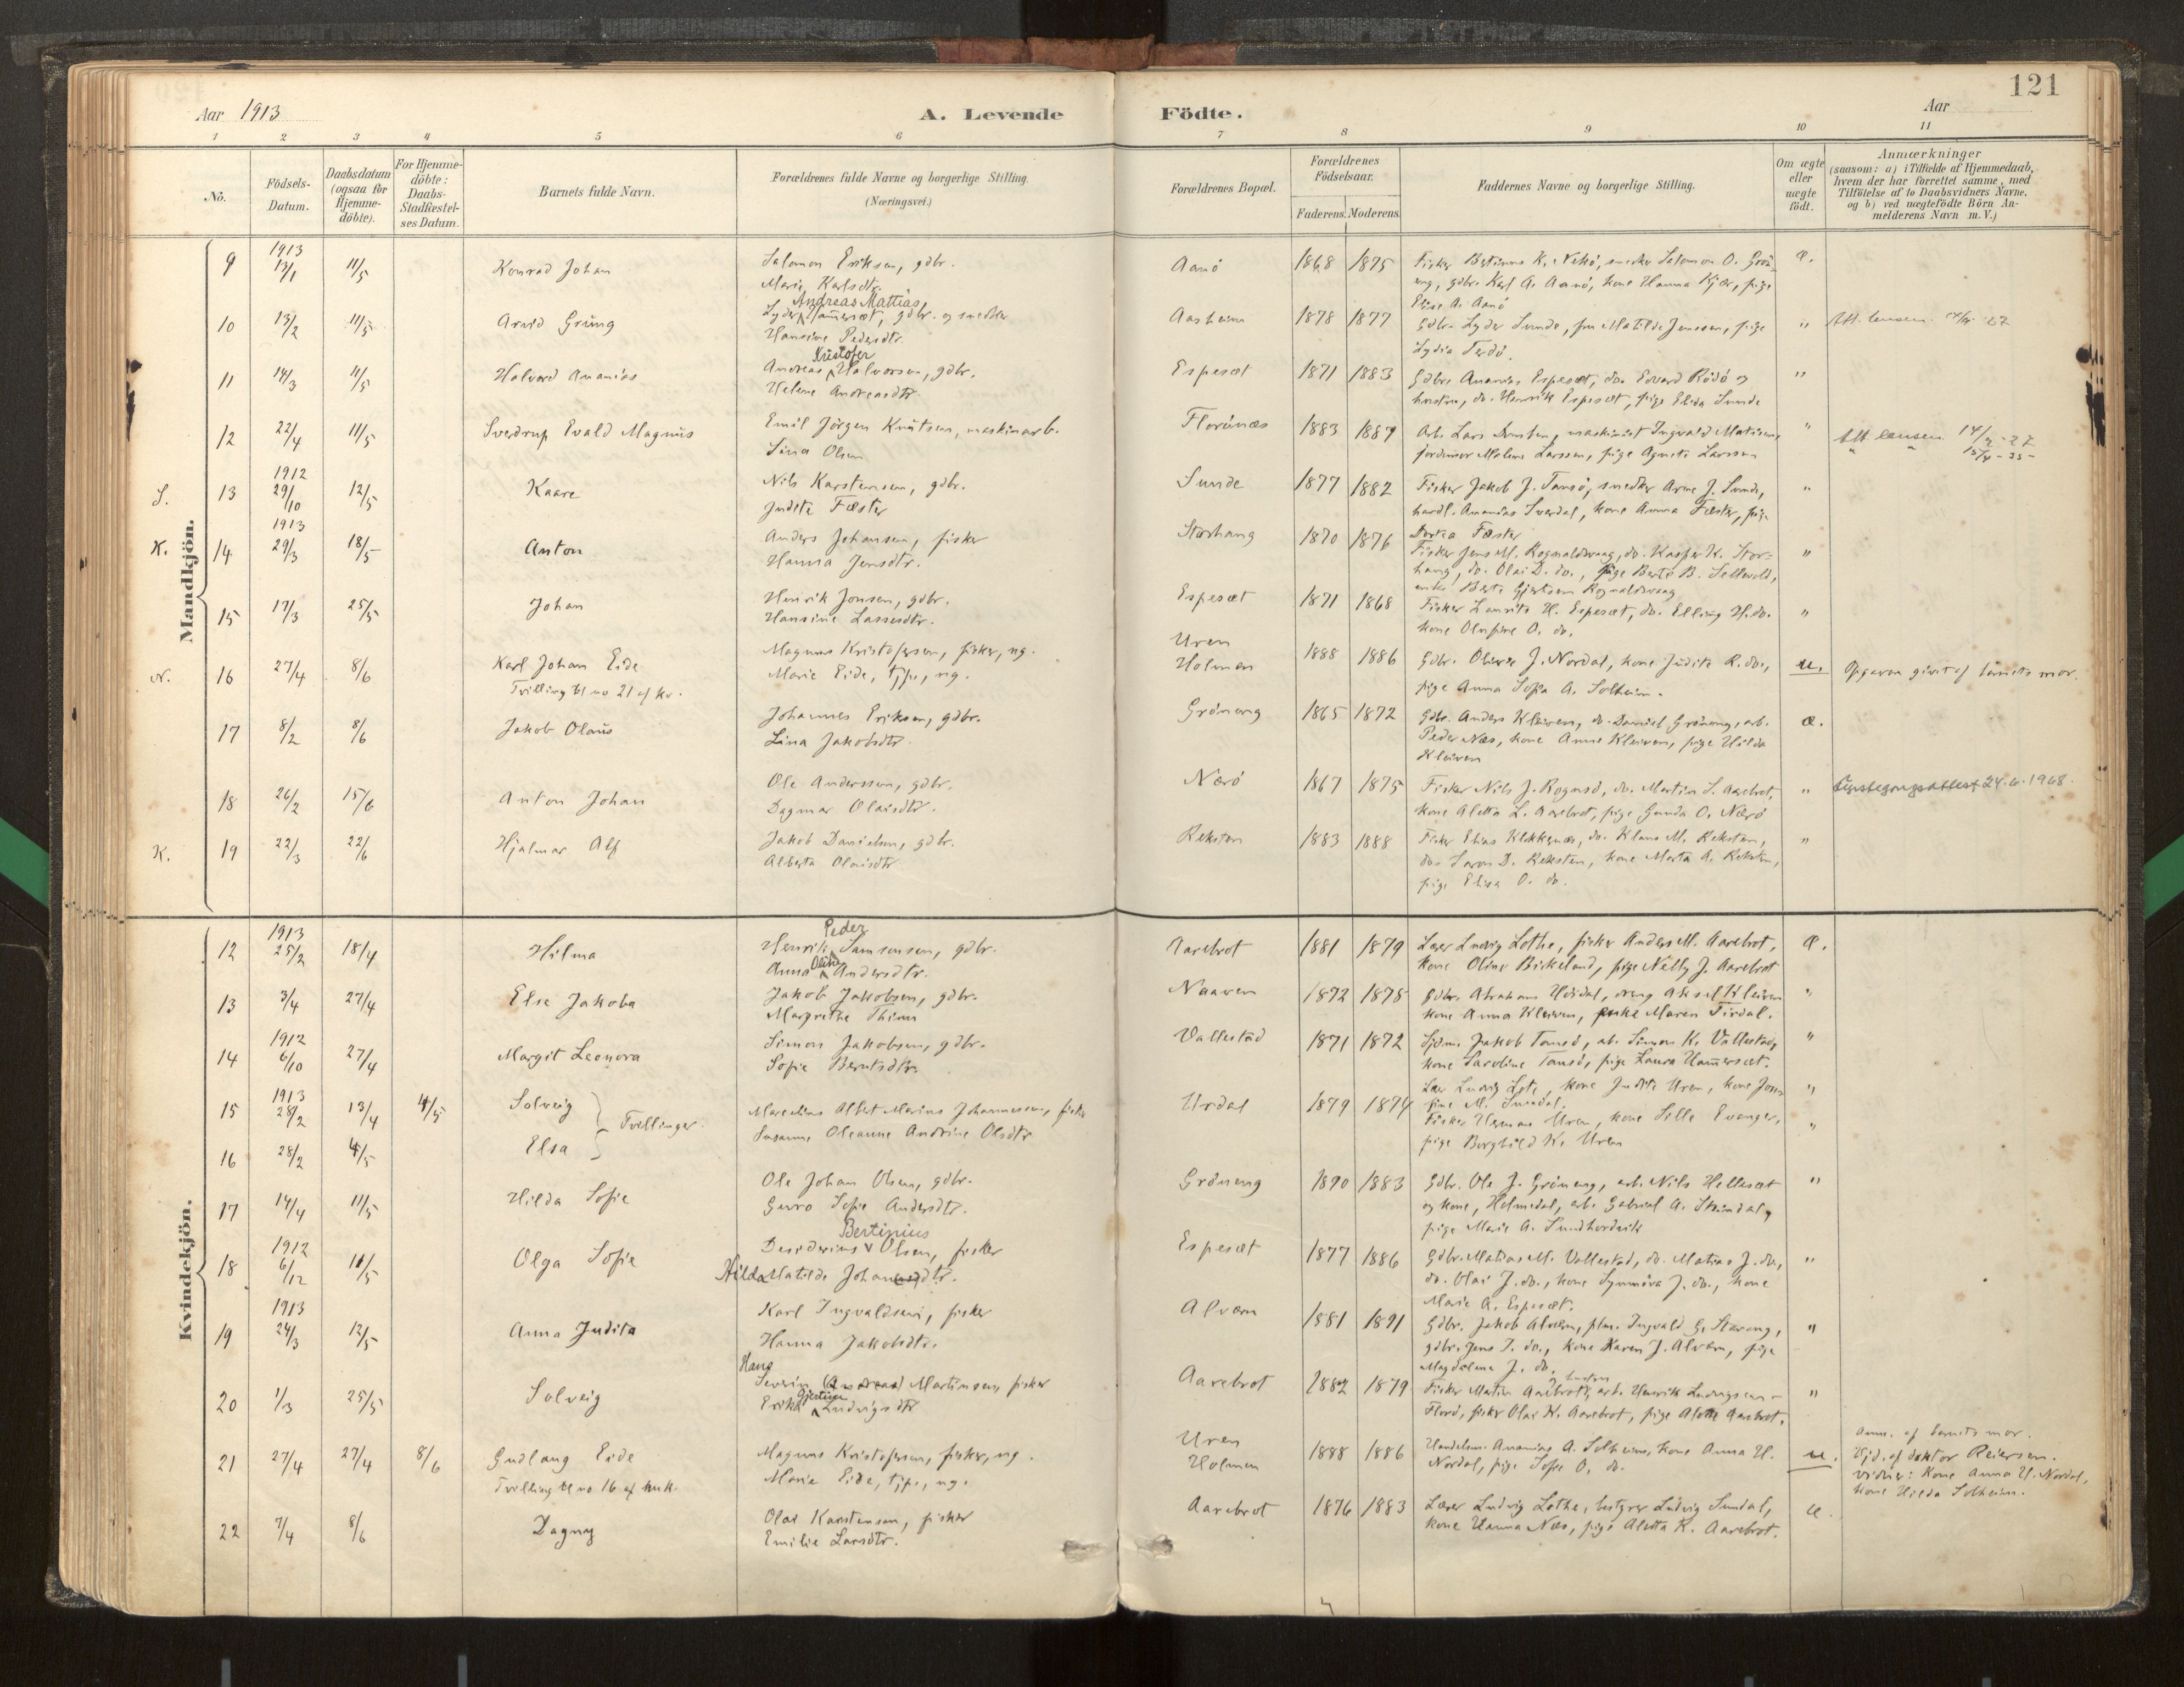 121
Aar 1913
A. Levende Födte.
Aar
1 2 3 4 5 6 7 8 9 10 11
No.
Födsels-Datum.
Daabsdatum (ogsaa for Hjemme-döbte).
For Hjemme-döbte: Daabs-Stadfæstel-ses Datum.
Barnets fulde Navn.
Forældrenes fulde Navne og borgerlige Stilling.
(Næringsvei.)
Forældrenes Bopæl.
Forældrenes Födselsaar.
Faderens. Moderens.
Faddernes Navne og borgerlige Stilling.
Om ægte eller uægte födt.
Anmærkninger
(saasom: a) i Tilfælde af Hjemmedaab,
hvem der har forrettet samme, med
Tilföielse af to Daabsvidners Navne.
og b) ved uægtefödte Börn An-
melderens Navn m. V.)
Mandkjön.
9 1913 13/1 11/5 Konrad Johan
Salomon Eriksen, gdbr.
Marie Karlsdtr.
Aanö 1868 1875
eng, gdbr. Karl A. Aanö, kone Hanna Kjær, pige
Elise A. Aanö
æ.
10 13/2 11/5 Arvid Grüng
Andreas Mattias,
Lyder Hamersæt, gdbr. og snedker
Hansine Pedersdtr.
Aasheim 1878 1877
Gdbr. Lyder Sunde, fru Matilde Jenssen, pige
Lydia Terdö.
"
11 14/3 11/5 Halvard Ananias
Kristofer
Andreas Halvorsen, gdbr.
Helene Andreasdtr.
Espesæt 1871 1883
Gdbr. Ananias Espesæt, do. Edvard Rödö og
hustru, do. Henrik Espesæt, pige Elida Sunde
"
12 22/4 11/5 Sverdrup Evald Magnus
Emil Jörgen Knutsen, maskinarb.
Sina Olsen
Florönæs 1883 1887
jordmor Malene Larssen, pige Agnete Larssen
"
S. 13 1912 29/10 12/5 Kaare
Nils Karstensen, gdbr.
Judita Fæster
Sunde 1877 1882
Fisker Jakob J. Tansö, snedker Arne J. Sunde,
handl. Ananias Sverdal, kone Anna Fæster, pige
Dortea Fæster
"
K. 14 1913 29/3 18/5 Anton
Anders Johansen, fisker
Hanna Jensdtr.
Storhaug 1870 1876
Fisker Jens M. Rognaldsvaag, do. Kasper K. Stor-
haug, do. Olai D. do., pige Berte B. Sellevold,
enke Berte Gjertsen Rognaldsvaag
"
15 17/3 25/5 Johan
Henrik Jonsen, gdbr.
Hansine Lassesdtr.
Espesæt 1871 1868
Fisker Laurits H. Espesæt, do. Elling H. do.
kone Olufine O. do.
"
N. 16 27/4 8/6 Karl Johan Eide
Tvilling til no 21 af kv.
Magnus Kristofersen, fisker, ug.
Marie Eide, tjp., ug.
Uren
Holmen 1888 1886
Gdbr. Oliver J. Nordal, kone Judite R. do.,
pige Anna Sofia A. Solheim.
u.
Opgaven givet af barnets mor.
17 8/2 8/6 Jakob Olaus
Johannes Eriksen, gdbr.
Lina Jakobsdtr.
Gröneng 1865 1872
Gdbr. Anders Kleiven, do. Daniel Gröneng, arb.
Peder Næs, kone Anne Kleiven, pige Hilda
Kleiven
æ.
18 26/2 15/6 Anton Johan
Ole Anderssen, gdbr.
Dagmar Olaisdtr.
Nærö 1867 1875
Fisker Nils J. Rognsö, do. Martin S. Aarebrot,
kone Aletta L. Aarebrot, pige Gunda O. Nærö
"
24.6.1968.
K. 19 22/3 22/6 Hjalmar Alf
Jakob Danielsen, gdbr.
Alberta Olaisdtr.
Reksten 1883 1888
Fisker Elias Klokkernæs, do. Klaus M. Reksten,
do. Søren D. Reksten, kone Marta A. Reksten,
pige Elisa O. do.
"
Kvindekjön.
12 1913 25/2 18/4 Hilma
Peder
Henrik Samsonsen, gdbr.
Anna Oline Andersdtr.
Aarebrot 1881 1879
Lærer Ludvig Lothe, fisker Anders M. Aarebrot,
kone Oline Birkeland, pige Nelly J. Aarebrot
æ.
13 3/4 27/4 Else Jakoba
Jakob Jakobsen, gdbr.
Margrethe Thinn
Naaven 1872 1875
Gdbr. Abraham Hovdal, dreng Aksel Kleiven
kone Anna Kleiven, enke Maren Tirdal.
"
14 1912 6/10 27/4 Margit Leonora
Simon Jakobsen, gdbr.
Sofie Berntsdtr.
Vallestad 1871 1872
Sjöm. Jakob Tansö, ab. Simon K. Vallestad,
kone Saroline Tansö, pige Laura Hamersæt.
"
15 1913 28/2 13/4 4/5 Solveig
Tvillinger.
16 28/2 4/5 Elsa
Marcelius Albert Marius Johannesen, fisker
Susanne Oleanne Andrine Olsdtr
Urdal 1879 1874
Lærer Ludvig Lote, kone Judite Uren, kone Josef-
ine M. Sundal.
"
Fisker Herman Uren, kone Sille Evanger,
pige Borghild K. Uren
"
17 14/4 11/5 Hilda Sofie
Ole Johan Olsen, gdbr.
Guro Sofie Andersdtr.
Gröneng 1890 1883
Gdbr. Ole J. Gröneng, arb. Nils Hellesæt
og kone, Holmedal, arb. Gabriel A. Steindal,
pige Marie A. Sundhordvik
"
18 1912 6/12 11/5 Olga Sofie
Bertinius
Desiderius Olsen, fisker
Hilda Matilde Johansdtr.
Espesæt 1877 1886
Gdbr. Matias M. Vallestad, do. Matias J. do.,
do. Olai J. do., kone Synnöva J. do., kone
Marie A. Espesæt.
"
19 1913 24/3 12/5 Anna Judita
Karl Ingvaldsen, fisker
Hanna Jakobsdtr.
Alværn 1881 1891
Gdbr. Jakob Alværn, plm. Ingvald G. Stavang,
gdbr. Jens J. do., kone Karen J. Alværn, pige
Magdalena J. do.
"
20 1/3 25/5 Solveig
Hans
Severin (Andreas) Martinsen, fisker
Erika Gjertine Ludvigsdtr
Aarebrot 1882 1879
og hustru
Fisker Martin Aarebrot, arb. Henrik Ludvigsen-
Florö, fisker Olai K. Aarebrot, pige Alette Aarebrot.
"
21 27/4 27/4 8/6 Gudlaug Eide
Tvilling til no 16 af mk.
Magnus Kristofersen, fisker, ug.
Marie Eide, tjp., ug.
Uren
Holmen 1888 1886
Handelsm. Ananias A. Solheim, kone Anna H.
Nordal, pige Sofie O. do.
u.
Anm. af barnets mor.
Hjd. af doktor Reiersen.
vidner: Kone Anna H. Nordal,
kone Hilda Solheim.
22 7/4 8/6 Dagny
Olai Karstensen, fisker
Emilie Larsdtr.
Aarebrot 1876 1883
Lærer Ludvig Lothe, bestyrer Ludvig Sundal,
kone Hanna Næs, pige Aletta K. Aarebrot.
æ.